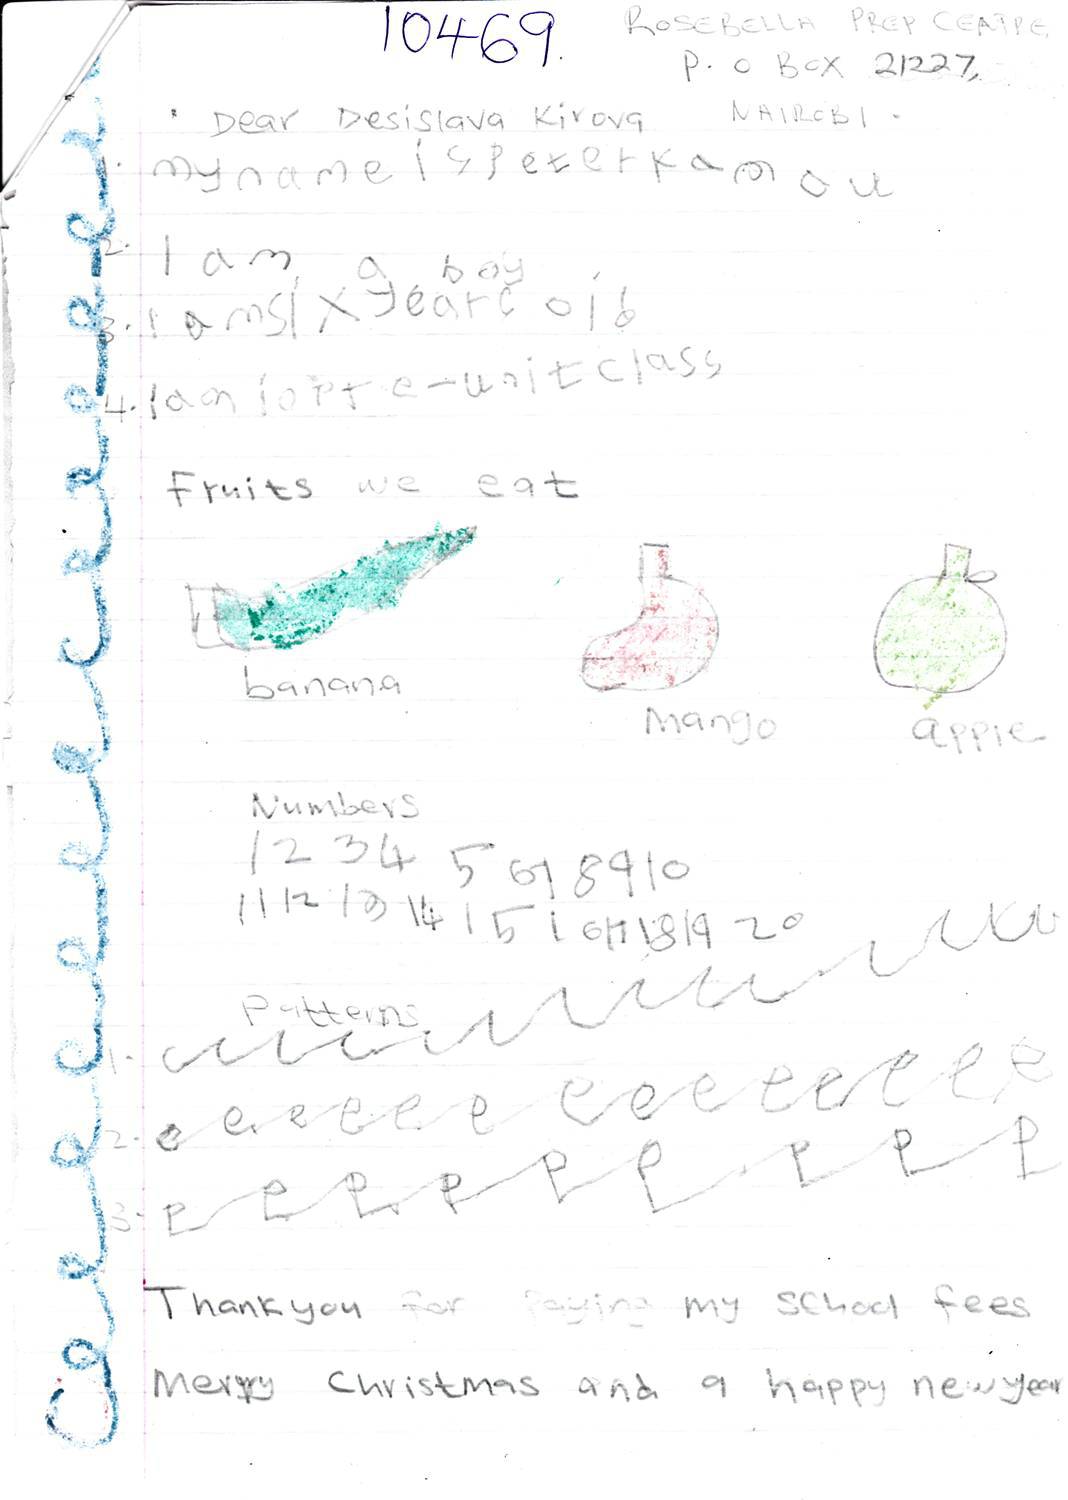 10469.
ROSEBELLA PREP CENTRE,
P. O BOX 21227,
NAIROBI.
Dear Desislava Kirova
1. my name is Peter Kamou
2. I am a boy
3. I am six years oib
4. I am io pre-unit class
Fruits we eat
banana
Mango
apple
Numbers
1 2 3 4 5 6 7 8 9 10
11 12 13 14 15 16 17 18 19 20
Patterns
1.
2. e e e e e e e e e e e e e e
3. P P P P P P P P P
Thank you for paying my school fees
Merry Christmas and a happy new year